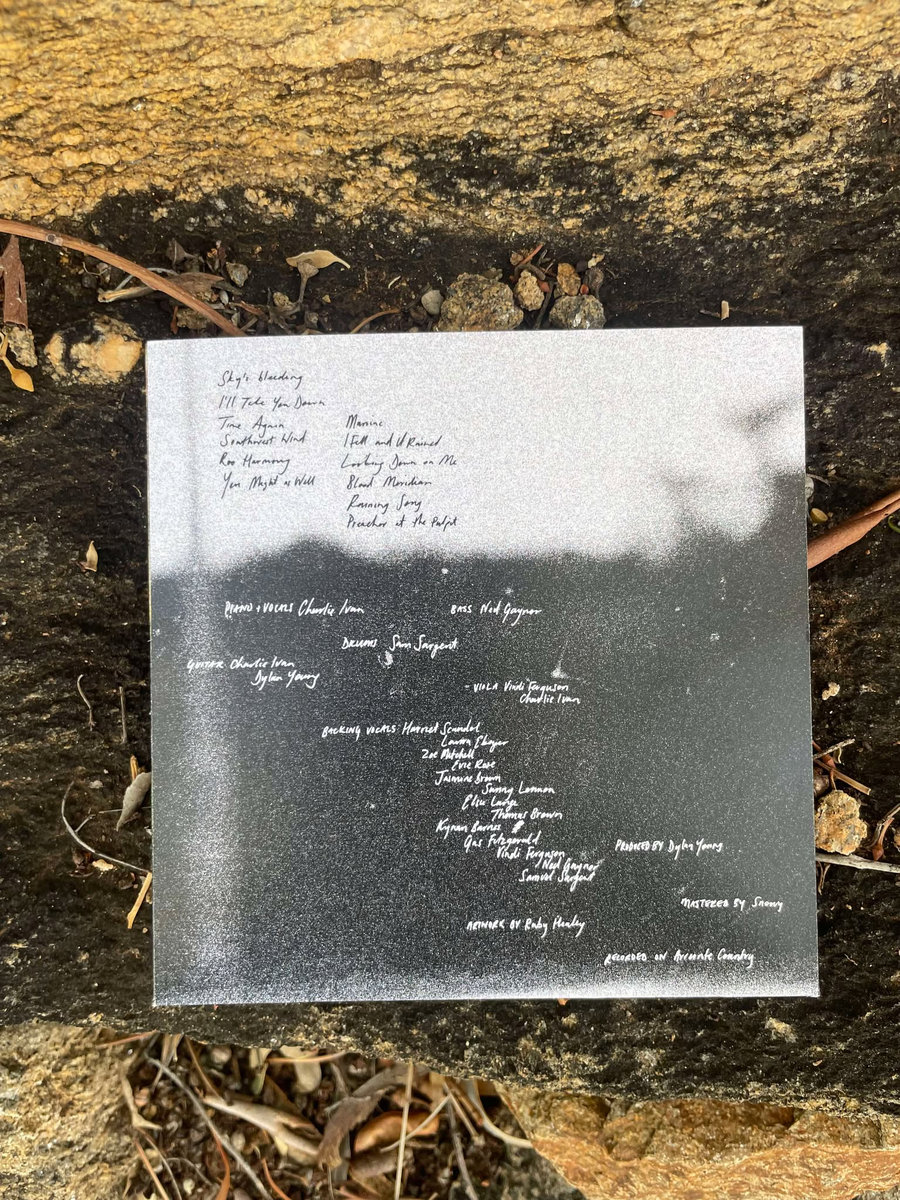 Sky's bleeding
I'll Take You Down
Time Again
Southwest Wind
Roo Harmony
You Might as Well
Maniac
I Fell and It Rained
Looking Down on Me
Blood Meridian
Running Song
Preacher at the Pulpit
PIANO + VOCALS Charlie Ivan
BASS Ned Gaynor
DRUMS Sam Sargent
GUITAR Charlie Ivan
Dylan Young
- VIOLA Vindi Ferguson
Charlie Ivan
BACKING VOCALS Harriet Scandol
Laura
Zoe Mitchell
Evie Rose
Jasmine Brown
Sunny Lennon
Elsie Lange
Thomas Brown
Kynan Barnes
Gus Fitzgerald
Vindi Ferguson
Ned Gaynor
Samuel Sargent
PRODUCED BY Dylan Young
MASTERED BY Snowy
ARTWORK BY Ruby Healey
RECORDED ON Arrernte Country